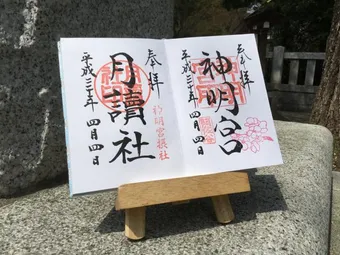 奉拝
神明宮
平成三十年 四月四日
奉拝
月讀社
神明宮摂社
平成三十年 四月四日